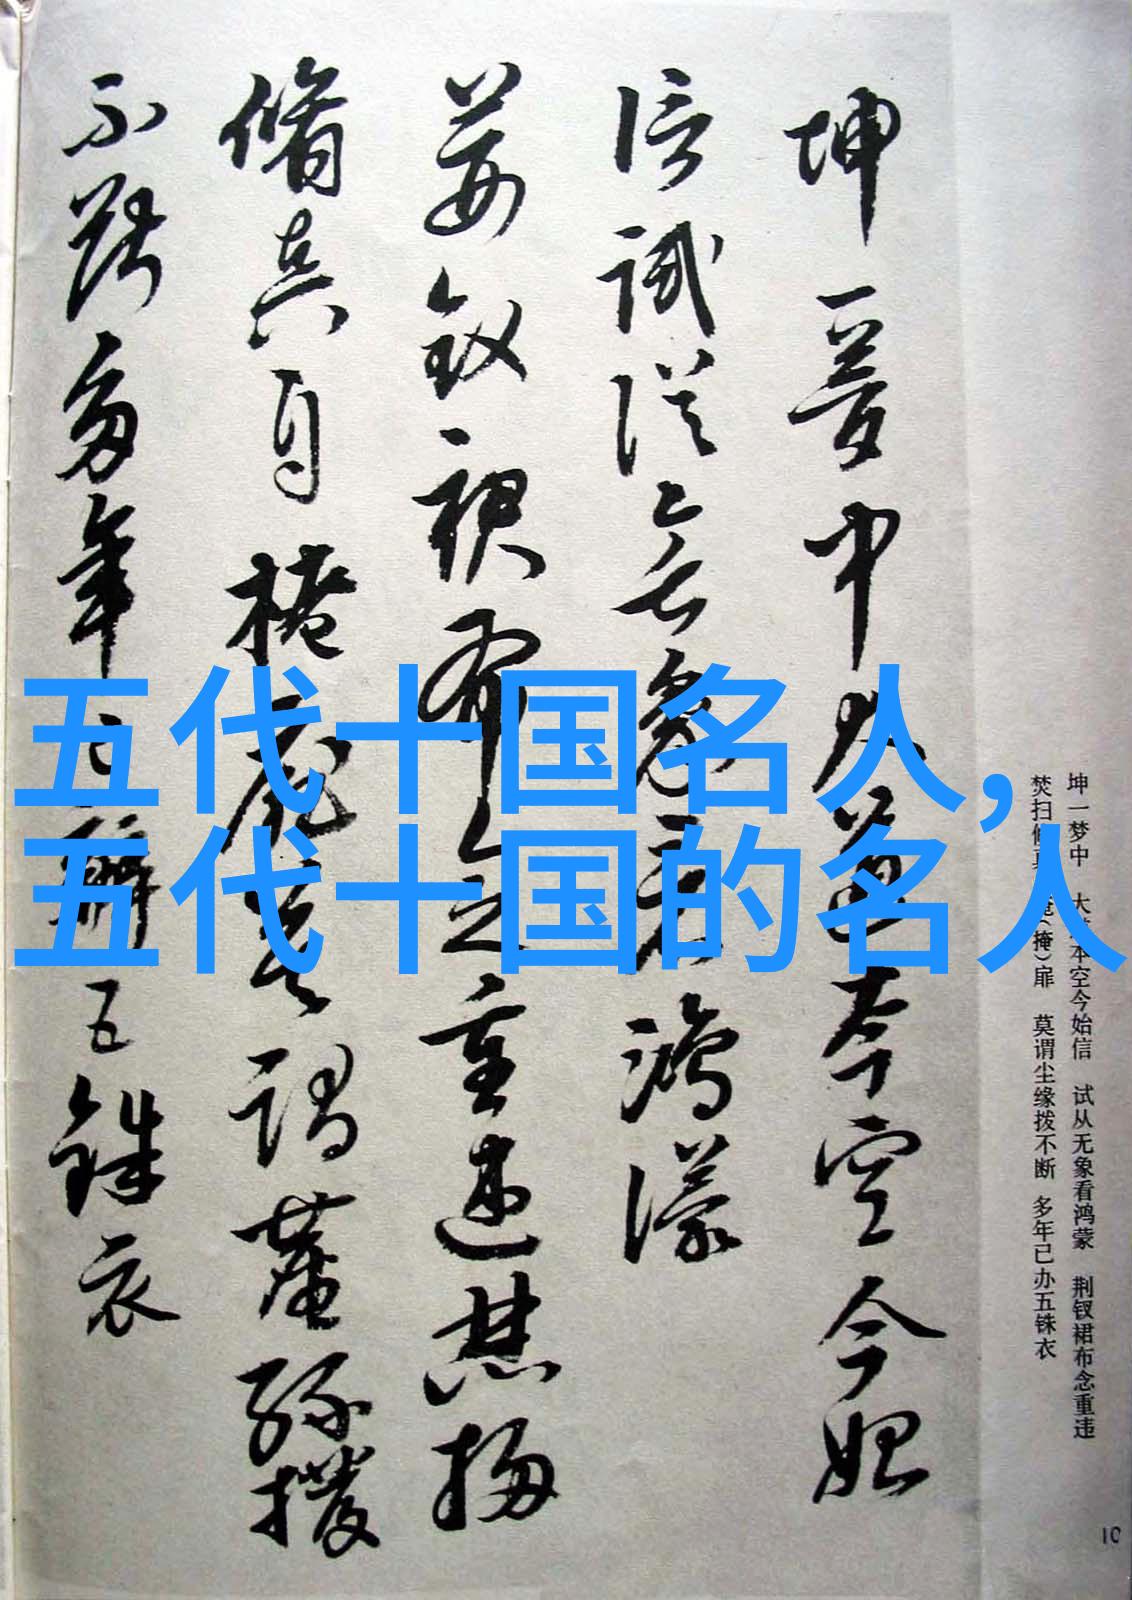 坤一梦中大道本空今始
信试从无象看鸿濛
荆钗裙布念重违焚扫
修真自掩扉莫谓尘缘拨
不断多年已办五铢衣
五代十国名人,
五代十国的名人
坤一梦中 大 本空今始信 试从无象看鸿蒙 荆钗裙布念重违
焚扫修真 掩(掩)扉 莫谓尘缘拨不断 多年已办五铢衣
10